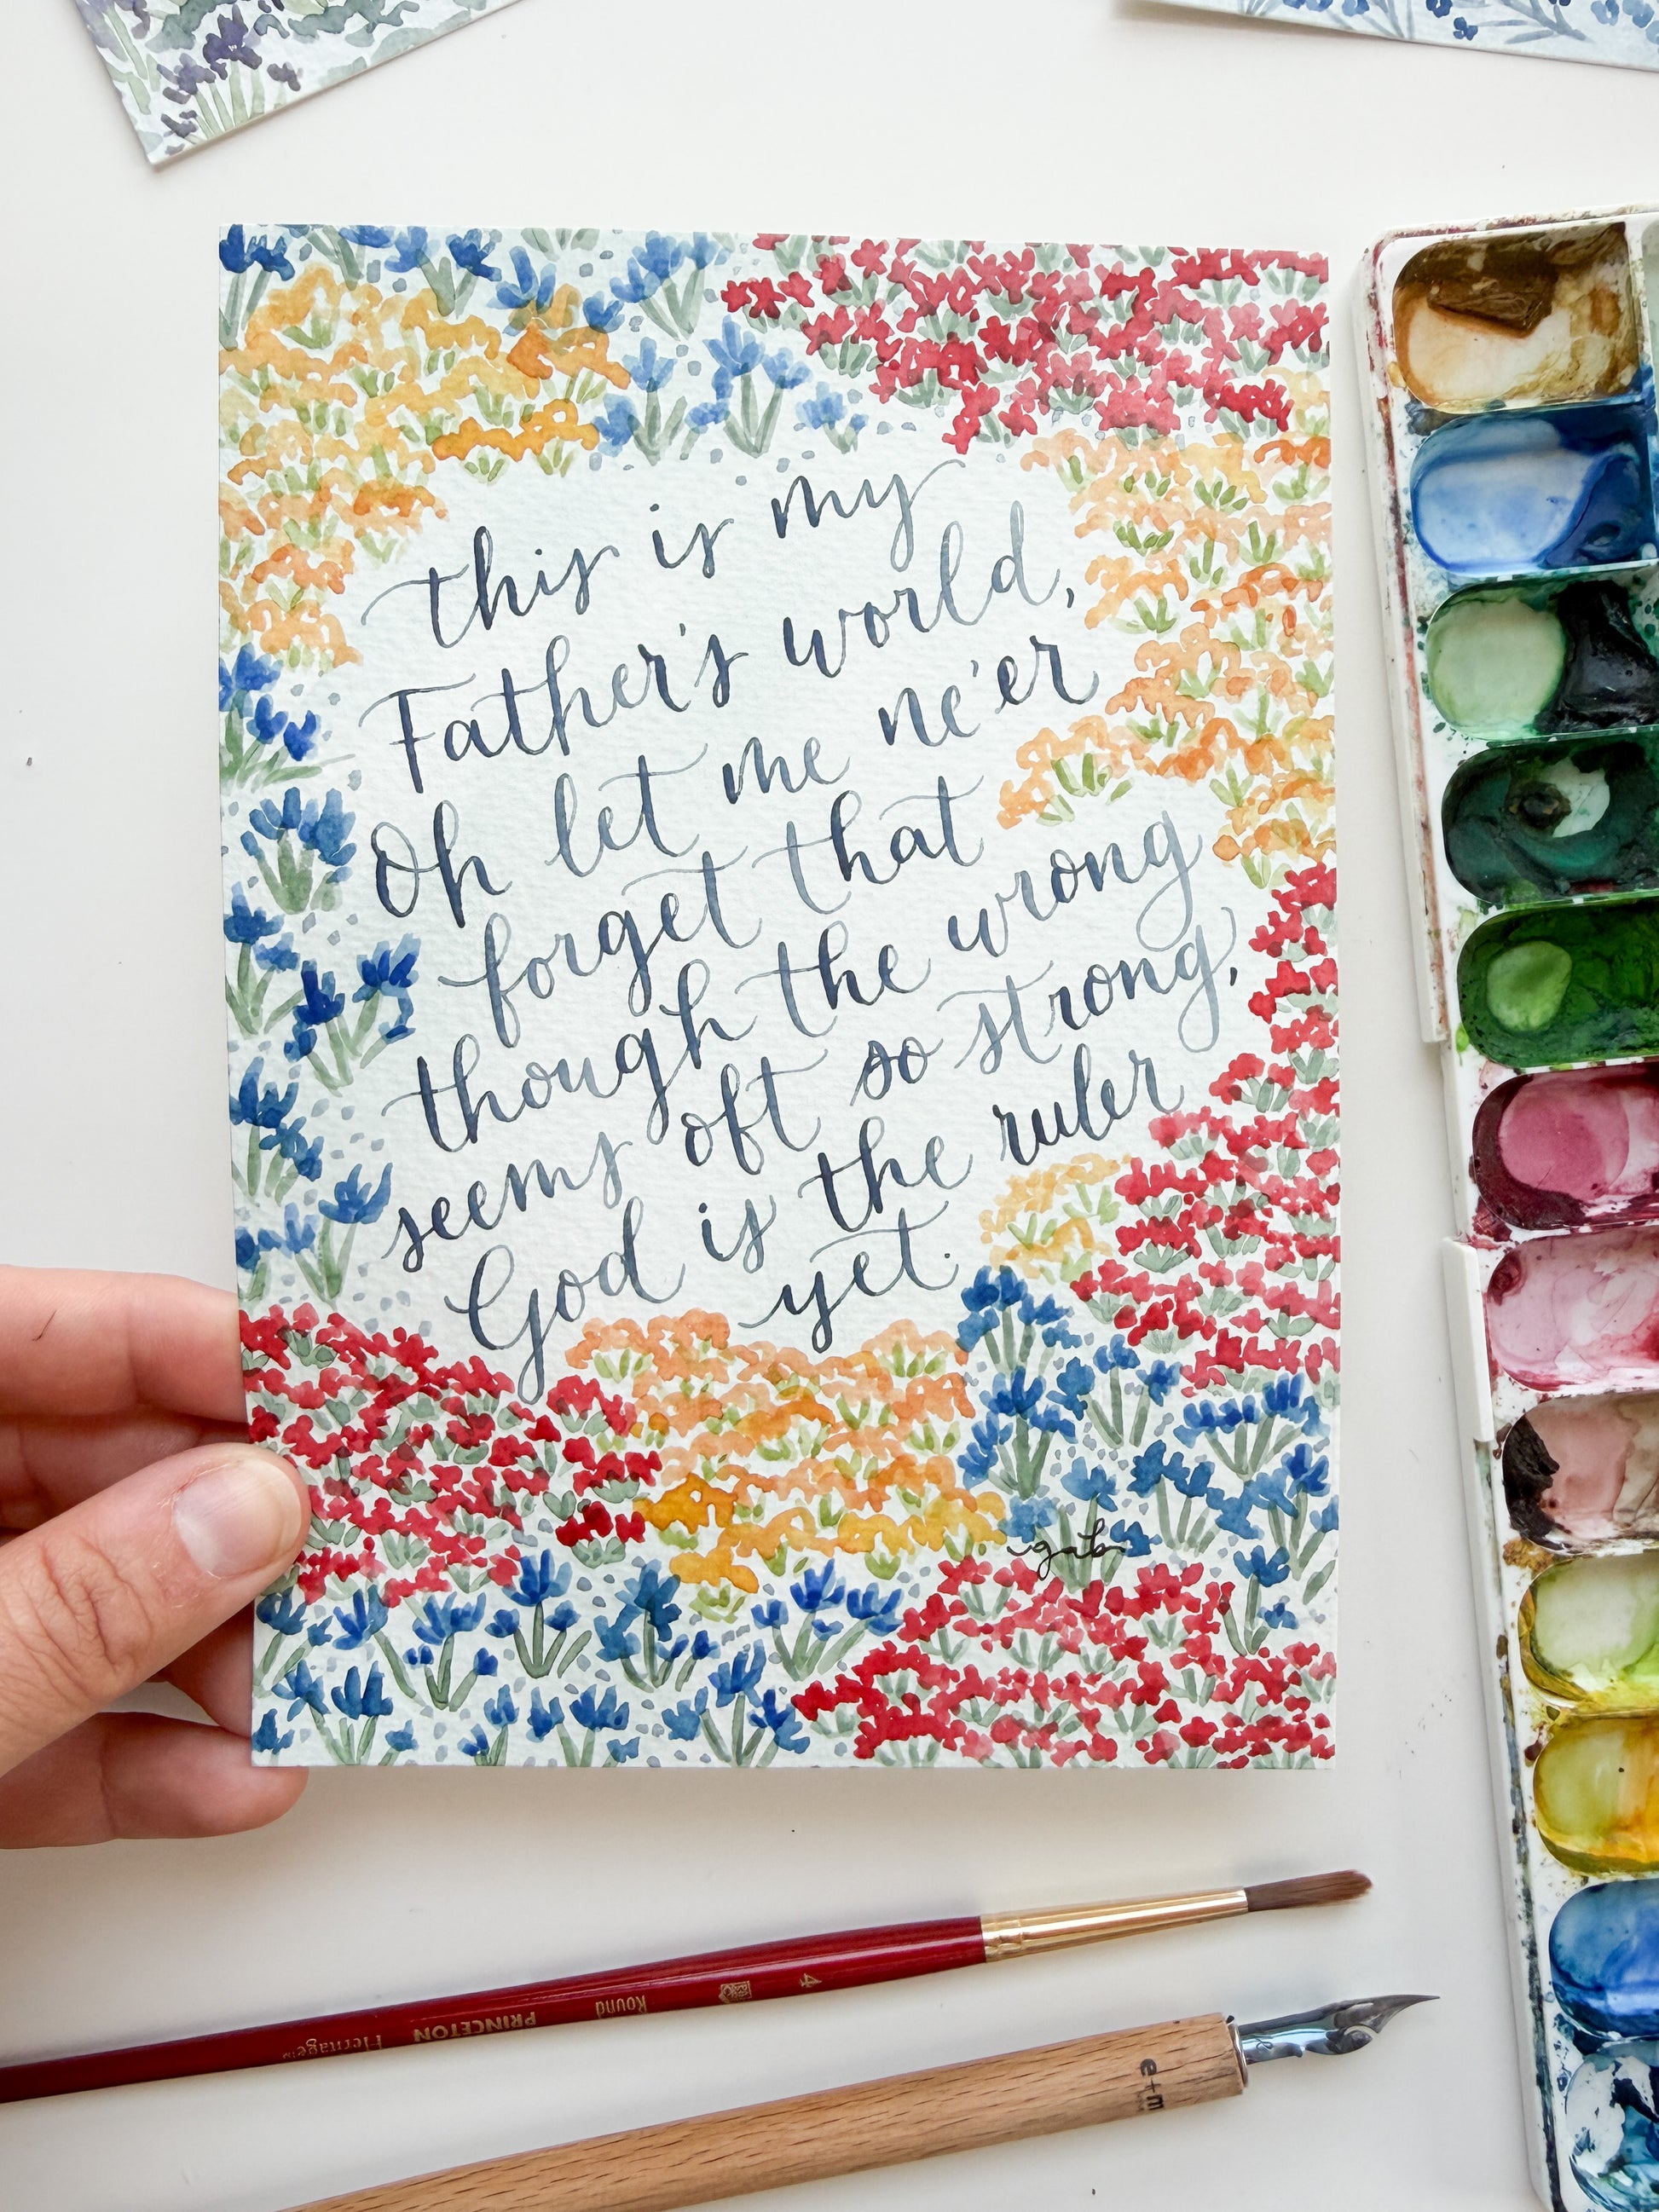 this is my
Father's world,
Oh let me ne'er
forget that
though the wrong
seems oft so strong,
God is the ruler
yet.
gab
Heritage™ PRINCETON Round 4
e+m